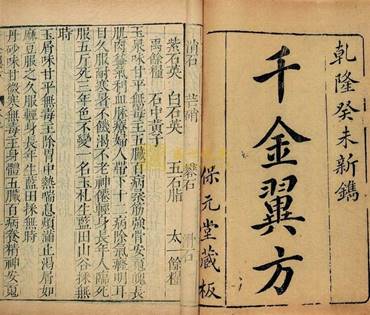 乾隆癸未新鐫
千金翼方
保元堂藏板
石 芒硝 礬石 滑石
紫石英 白石英 五石脂 太一餘糧
禹餘糧 石中黃子
玉泉味甘平無毒主五臟百病柔筋強骨安䰟魄長
肌肉益氣利血脉療婦人帶下十二病除氣癃明耳
目久服耐寒暑不飢渴不老神仙輕身長年人臨死
服五斤死三年色不變一名玉札生藍田山谷採無
時
玉屑味甘平無毒主除胃中熱喘息煩滿止渴屑如
麻豆服之久服輕身長年生藍田採無時
丹砂味甘微寒無毒主身體五臟百病養精神安䰟